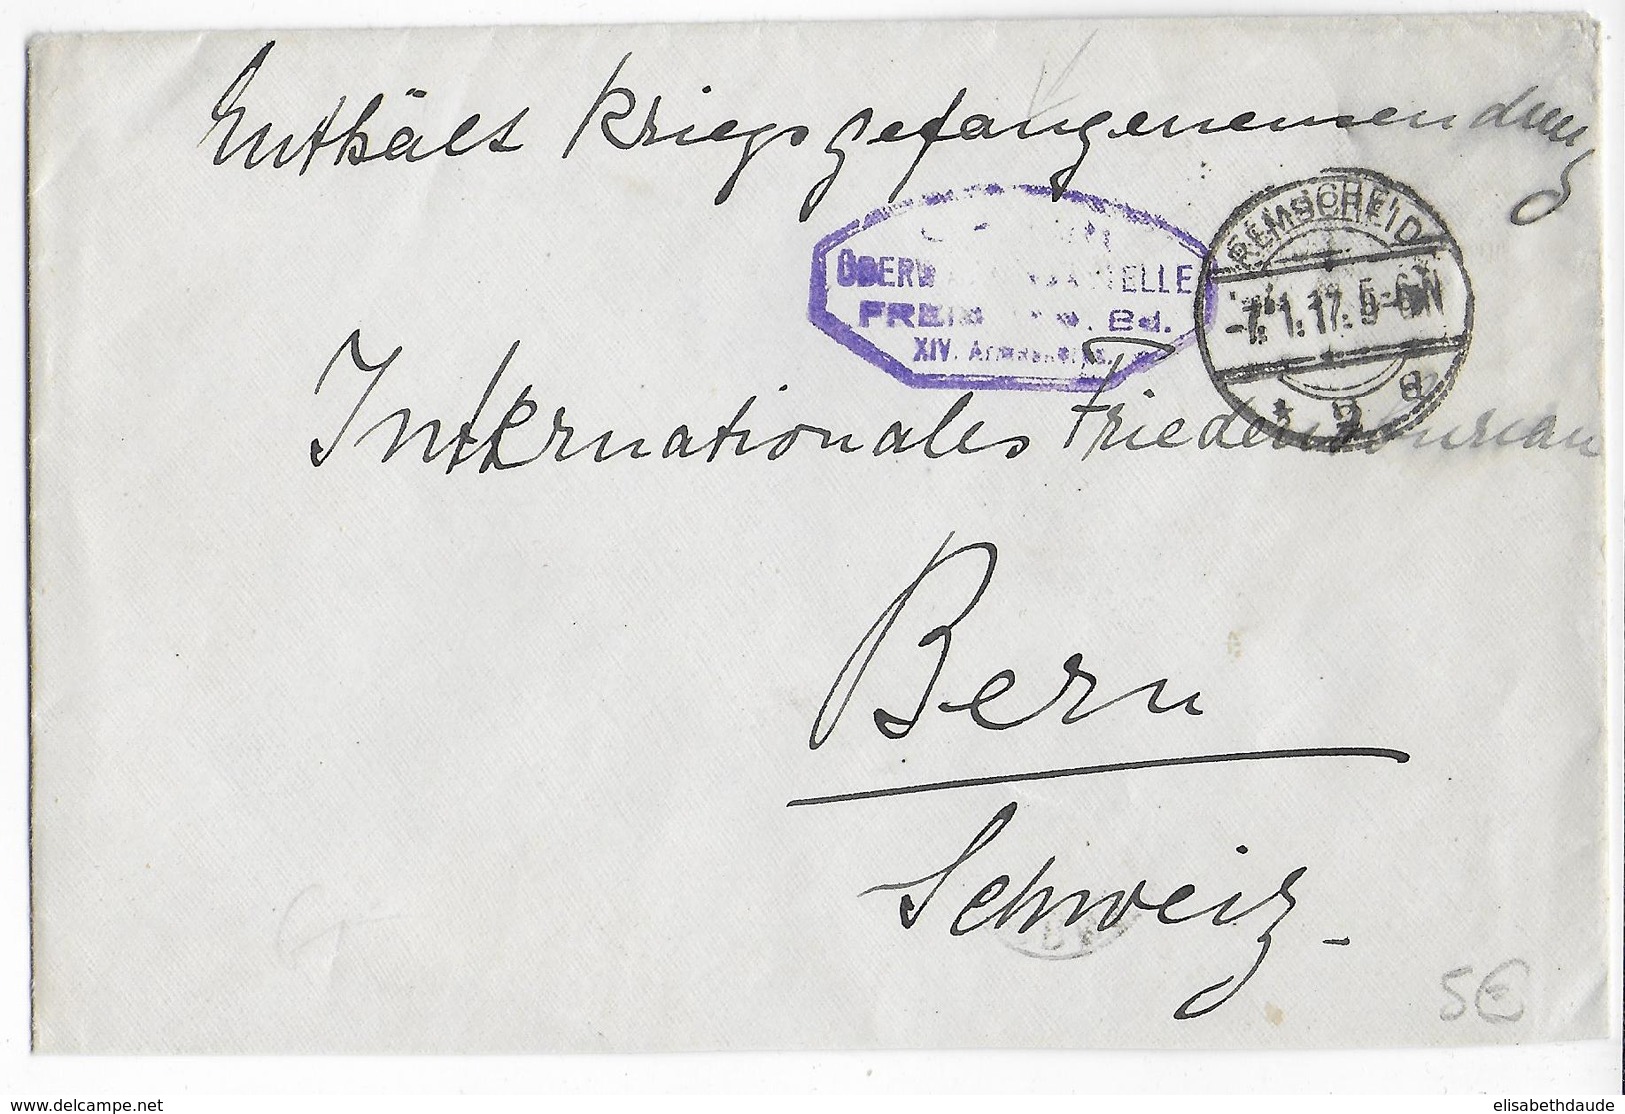 Enthält Kriegsgefangenensendung
REMSCHEID
-7.1.17. 5-6N
* 2 a
XIV.
Internationales Friedensbureau
Bern
Schweiz.
5€
www.delcampe.net
elisabethdaude